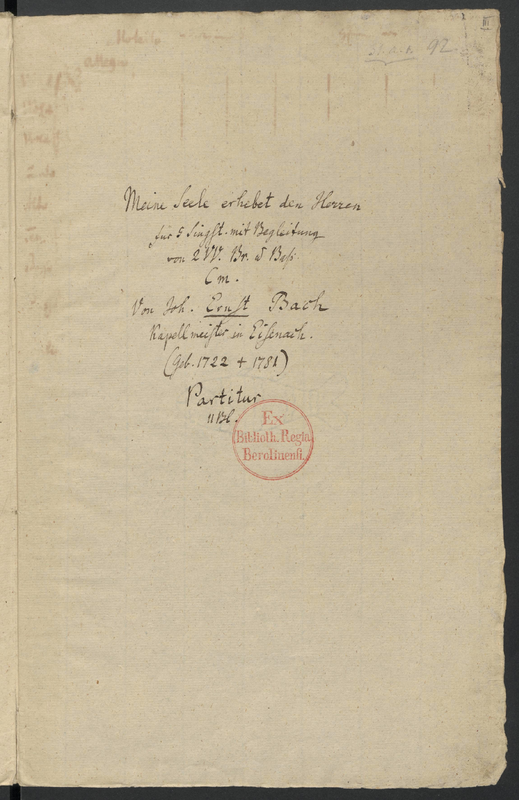 III
92
Meine Seele erhebet den Herren
für 5 Singst. mit Begleitung
von 2 VV. Br. u Bass
Cm.
Von Joh. Ernst Bach
Kapellmeister in Eisenach.
(Geb. 1722 + 1781)
Partitur
11 Bl.
Ex
Biblioth. Regia
Berolinensi.